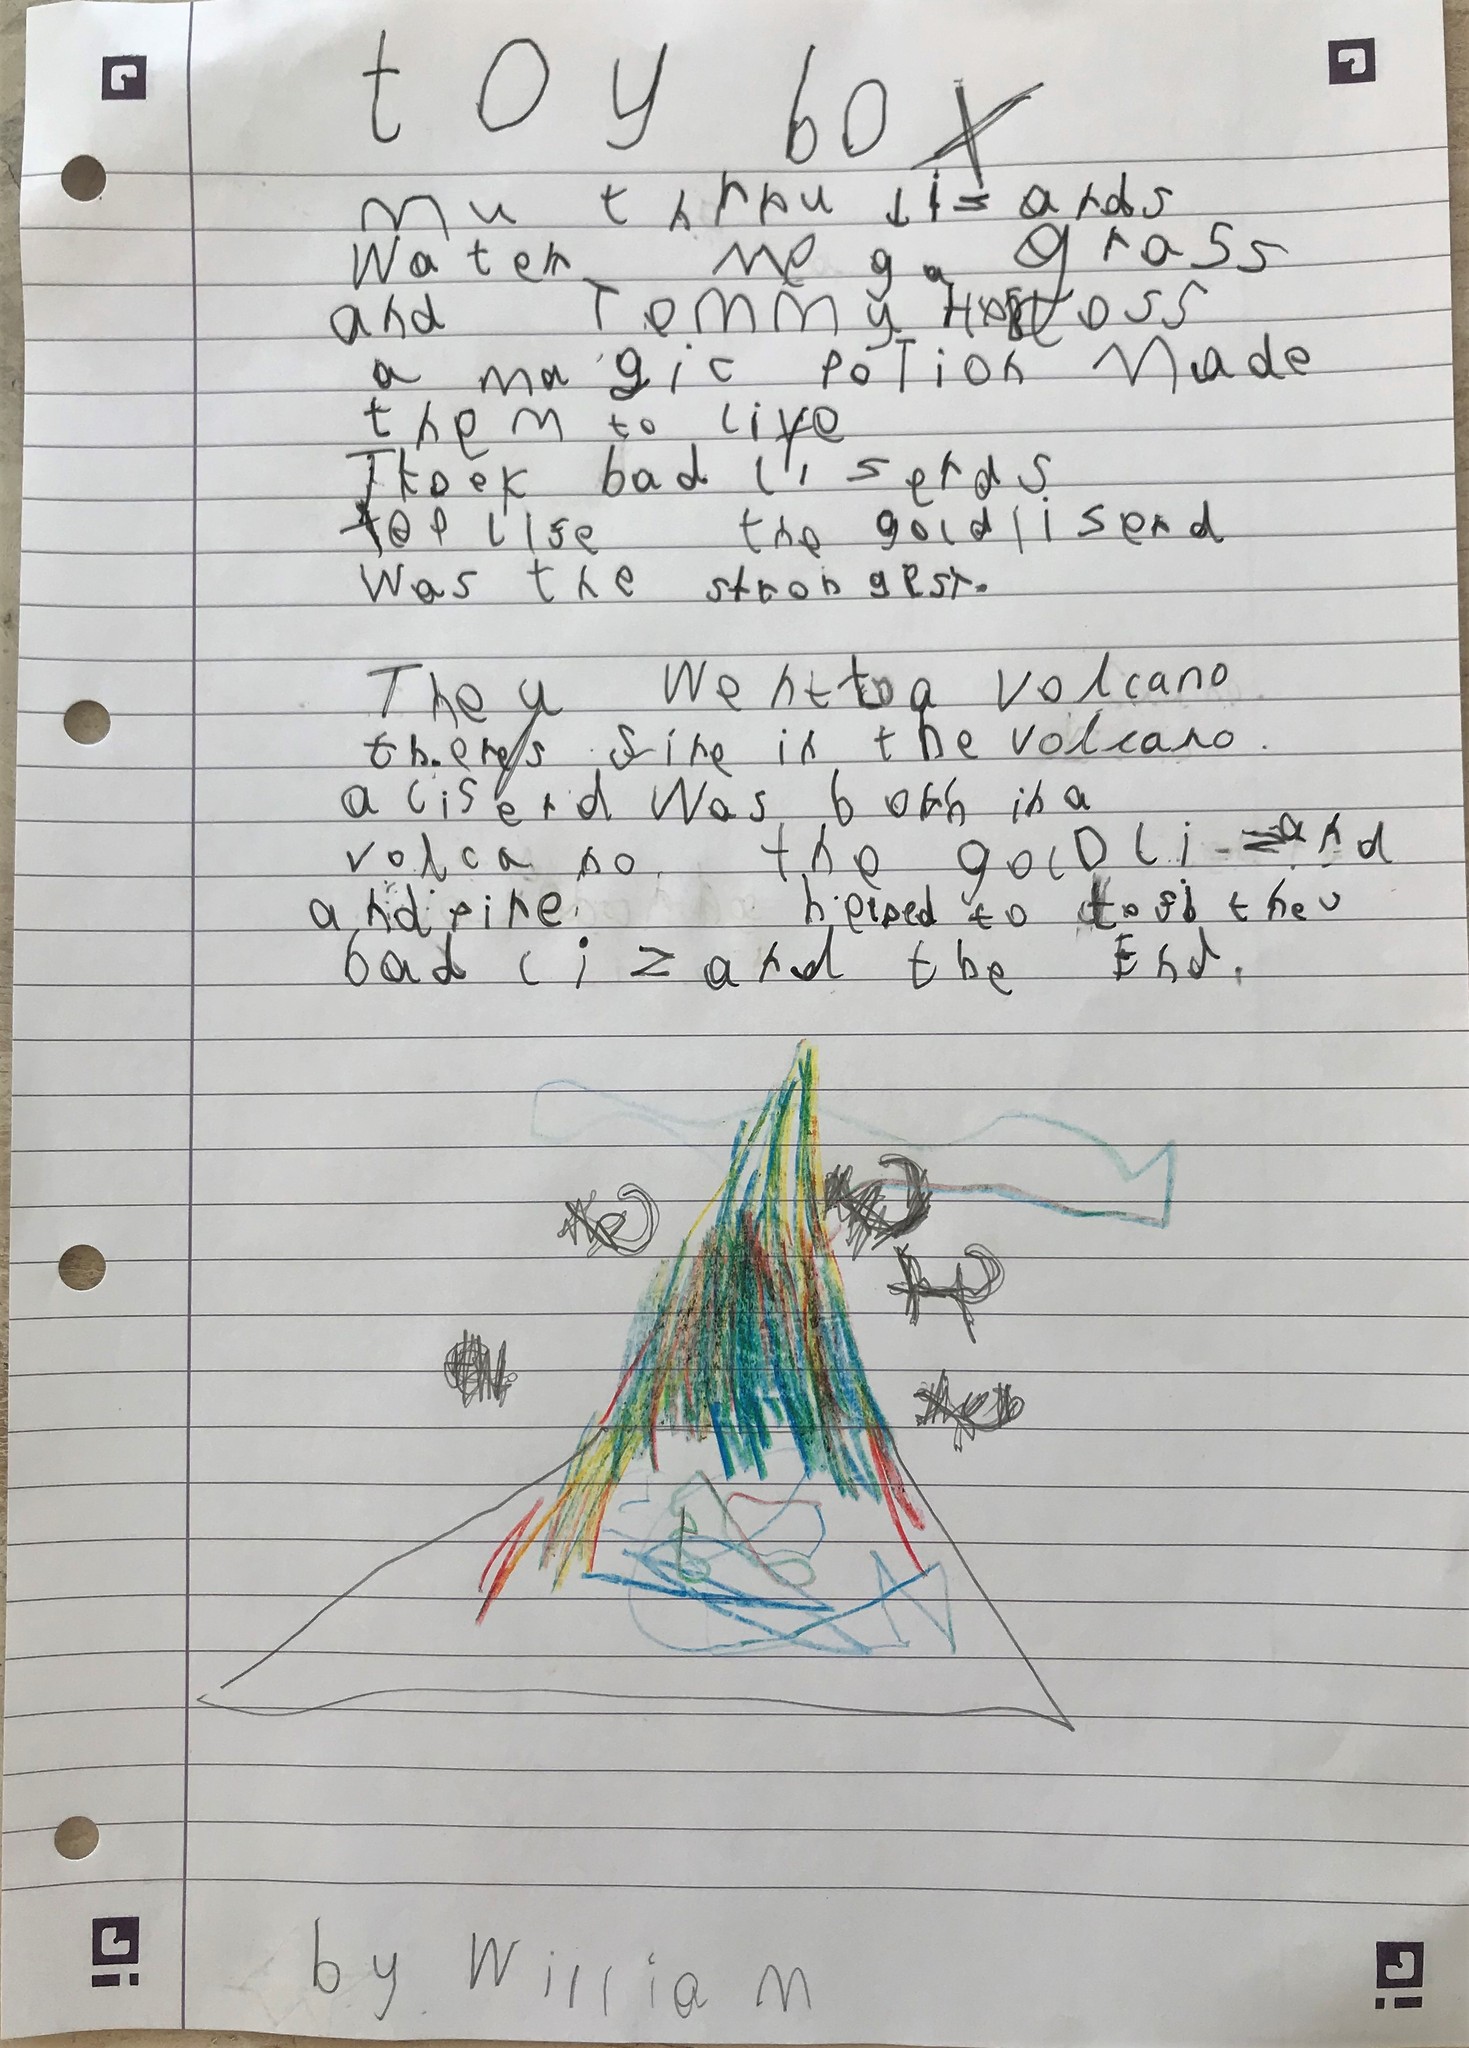 toy box
Mu thrru lizards
Water mega grass
and Temmy Hoss
a magic poTion Made
them to live
bad liserds
the goldliserd
Was the strongest.
They Went to a volcano
theres fire in the volcano.
a liserd Was born in a
volcano. the golD lizard
and fire helped to the
bad lizard the End.
by William